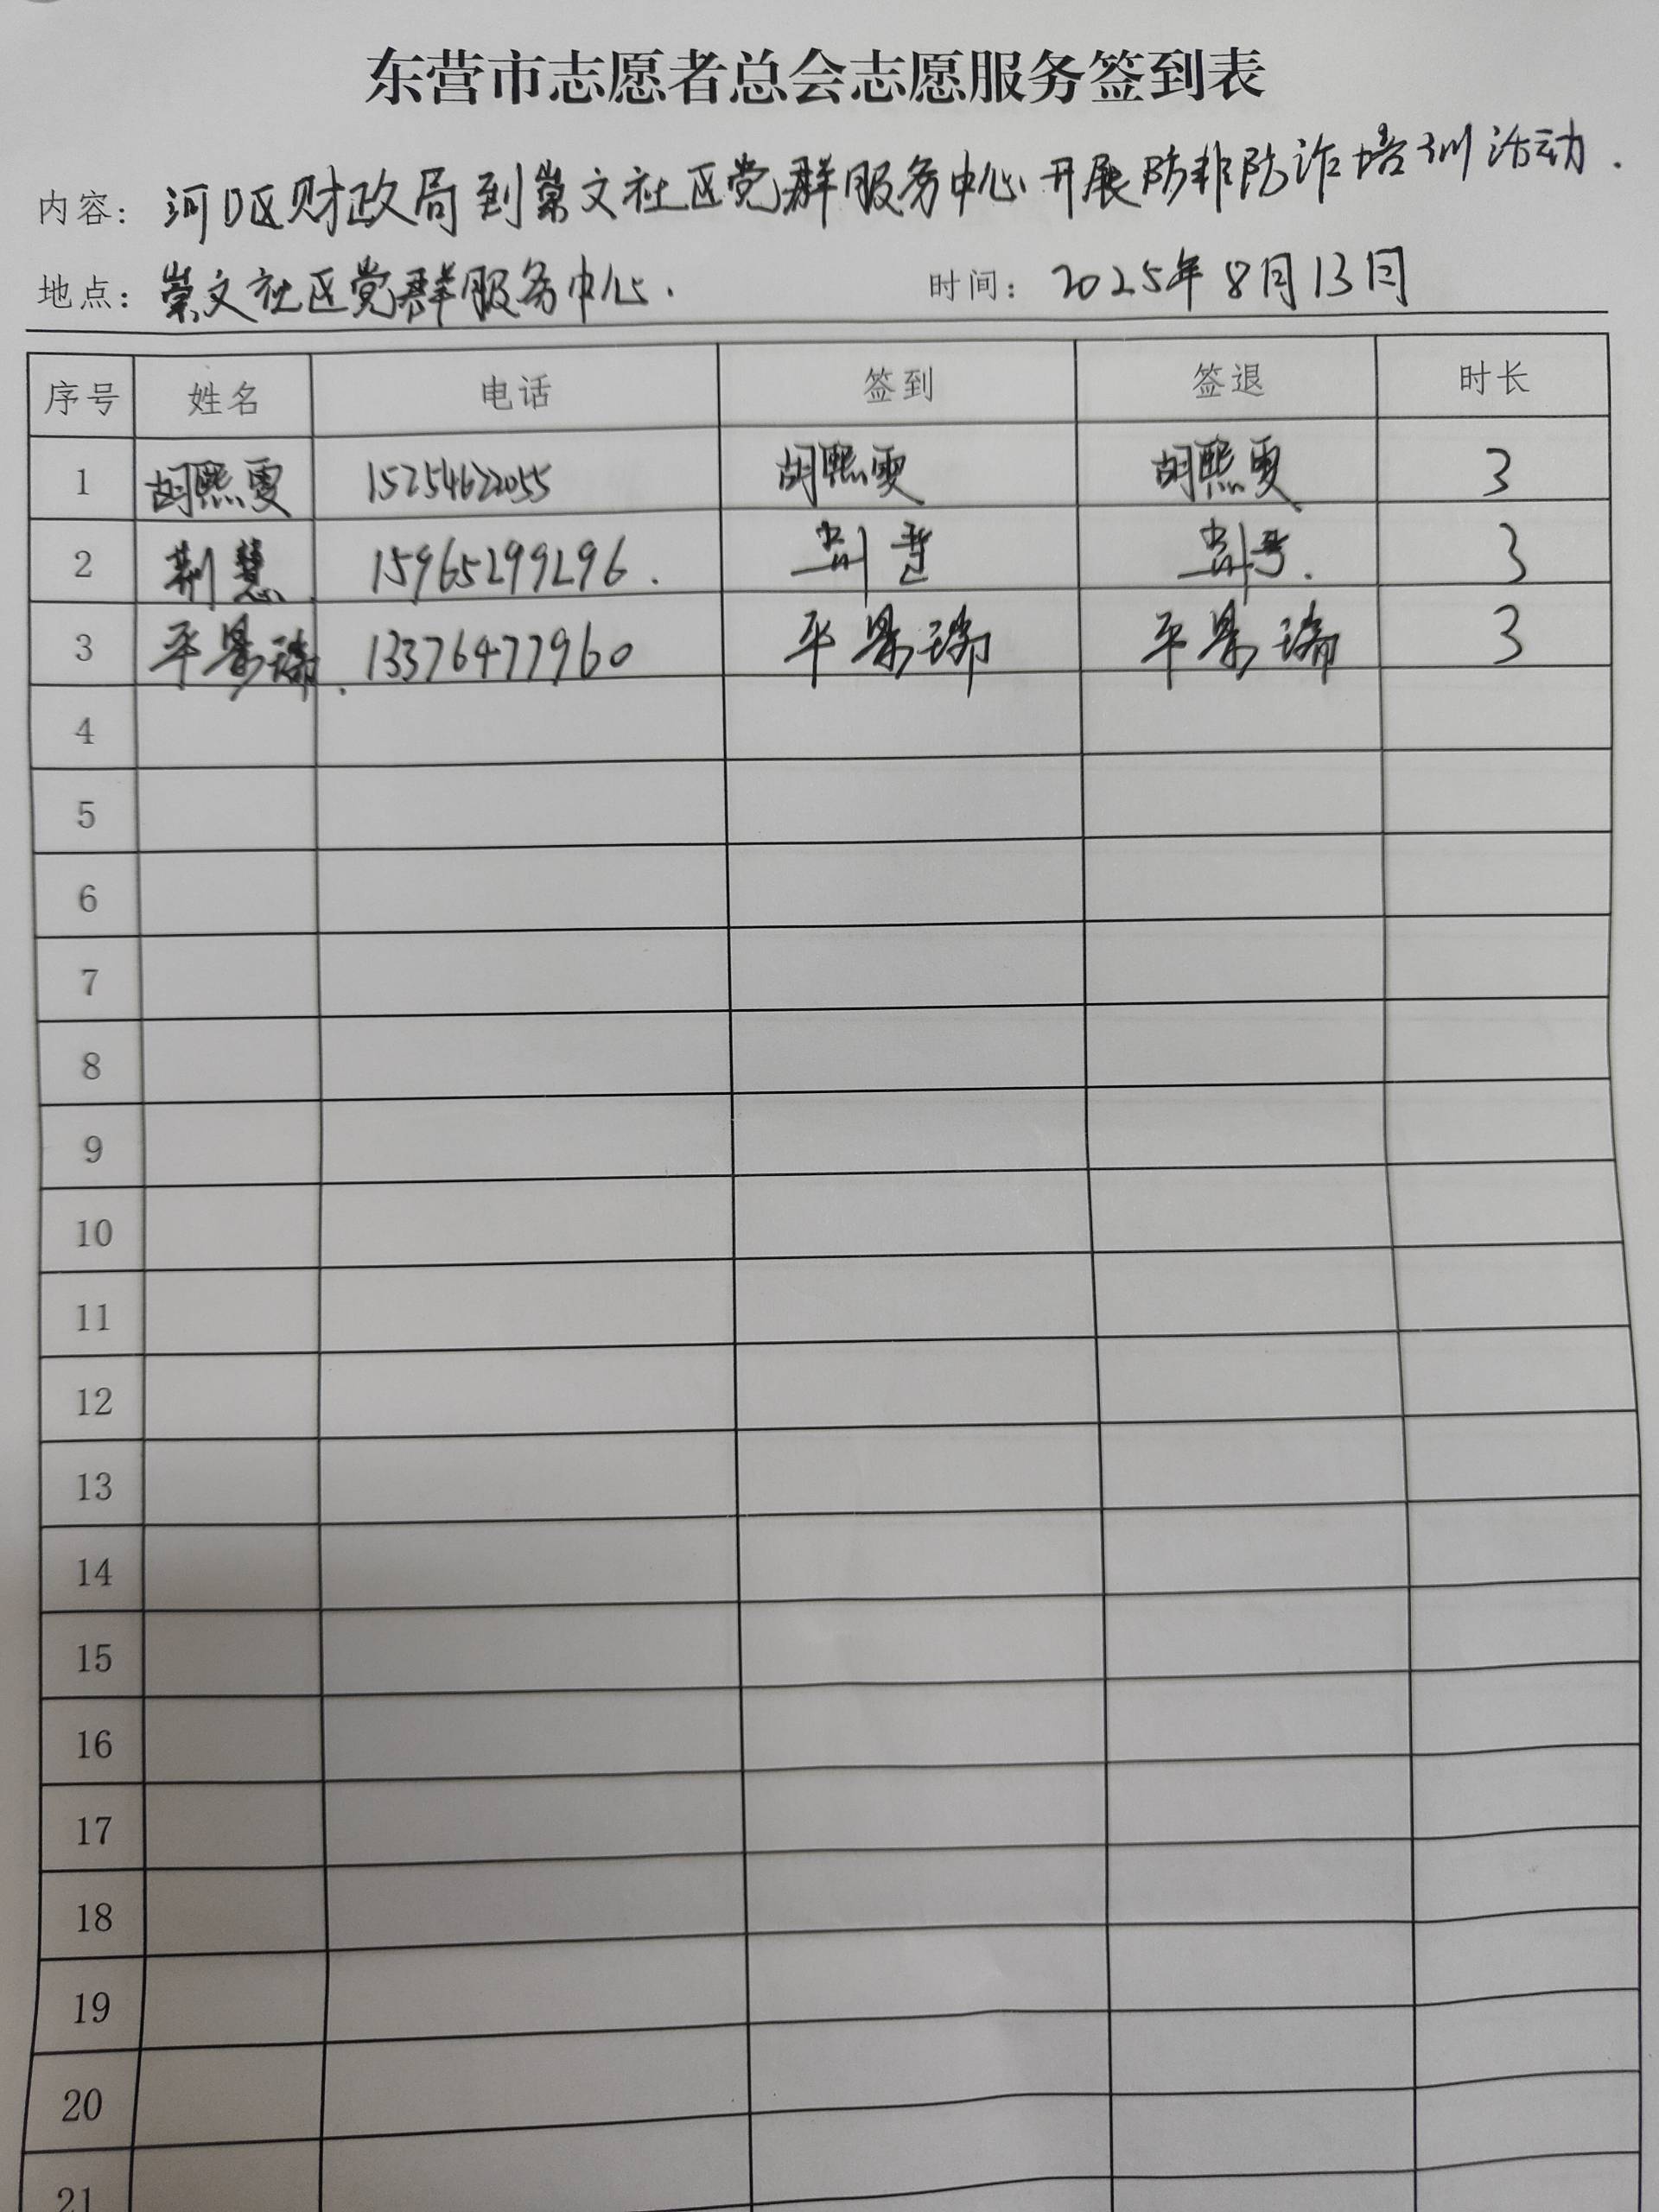 东营市志愿者总会志愿服务签到表
内容：河口区财政局到崇文社区党群服务中心开展防非防诈培训活动.
地点：崇文社区党群服务中心. 时间：2025年8月13日
序号 姓名 电话 签到 签退 时长
1 胡熙雯 15254622055 胡熙雯 胡熙雯 3
2 荆慧 15965299296. 3
3 平景瑞. 13376477960 平景瑞 平景瑞 3
4
5
6
7
8
9
10
11
12
13
14
15
16
17
18
19
20
21